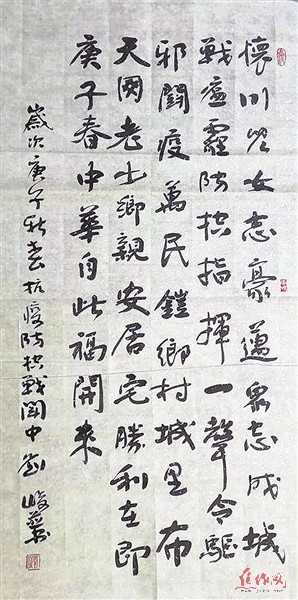 懷川兒女志豪邁眾志成城
戰瘟霾防控指揮一聲令驅
邪鬪疫萬民鎧鄉村城里布
天網老少鄉親安居宅勝利在即
庚子春中華自此福開來
歲次庚子新春抗疫防控戰鬪中劉峻
焦作网